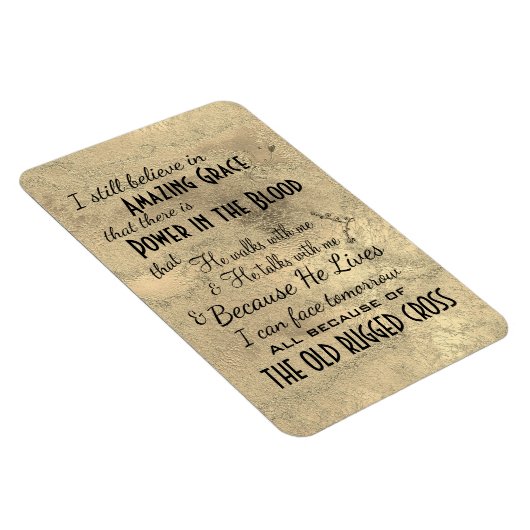 I still believe in
AMAZING GRACE
that there is
POWER IN THE BLOOD
that He walks with me
& He talks with me
& Because He Lives
I can face tomorrow
ALL BECAUSE OF
THE OLD RUGGED CROSS